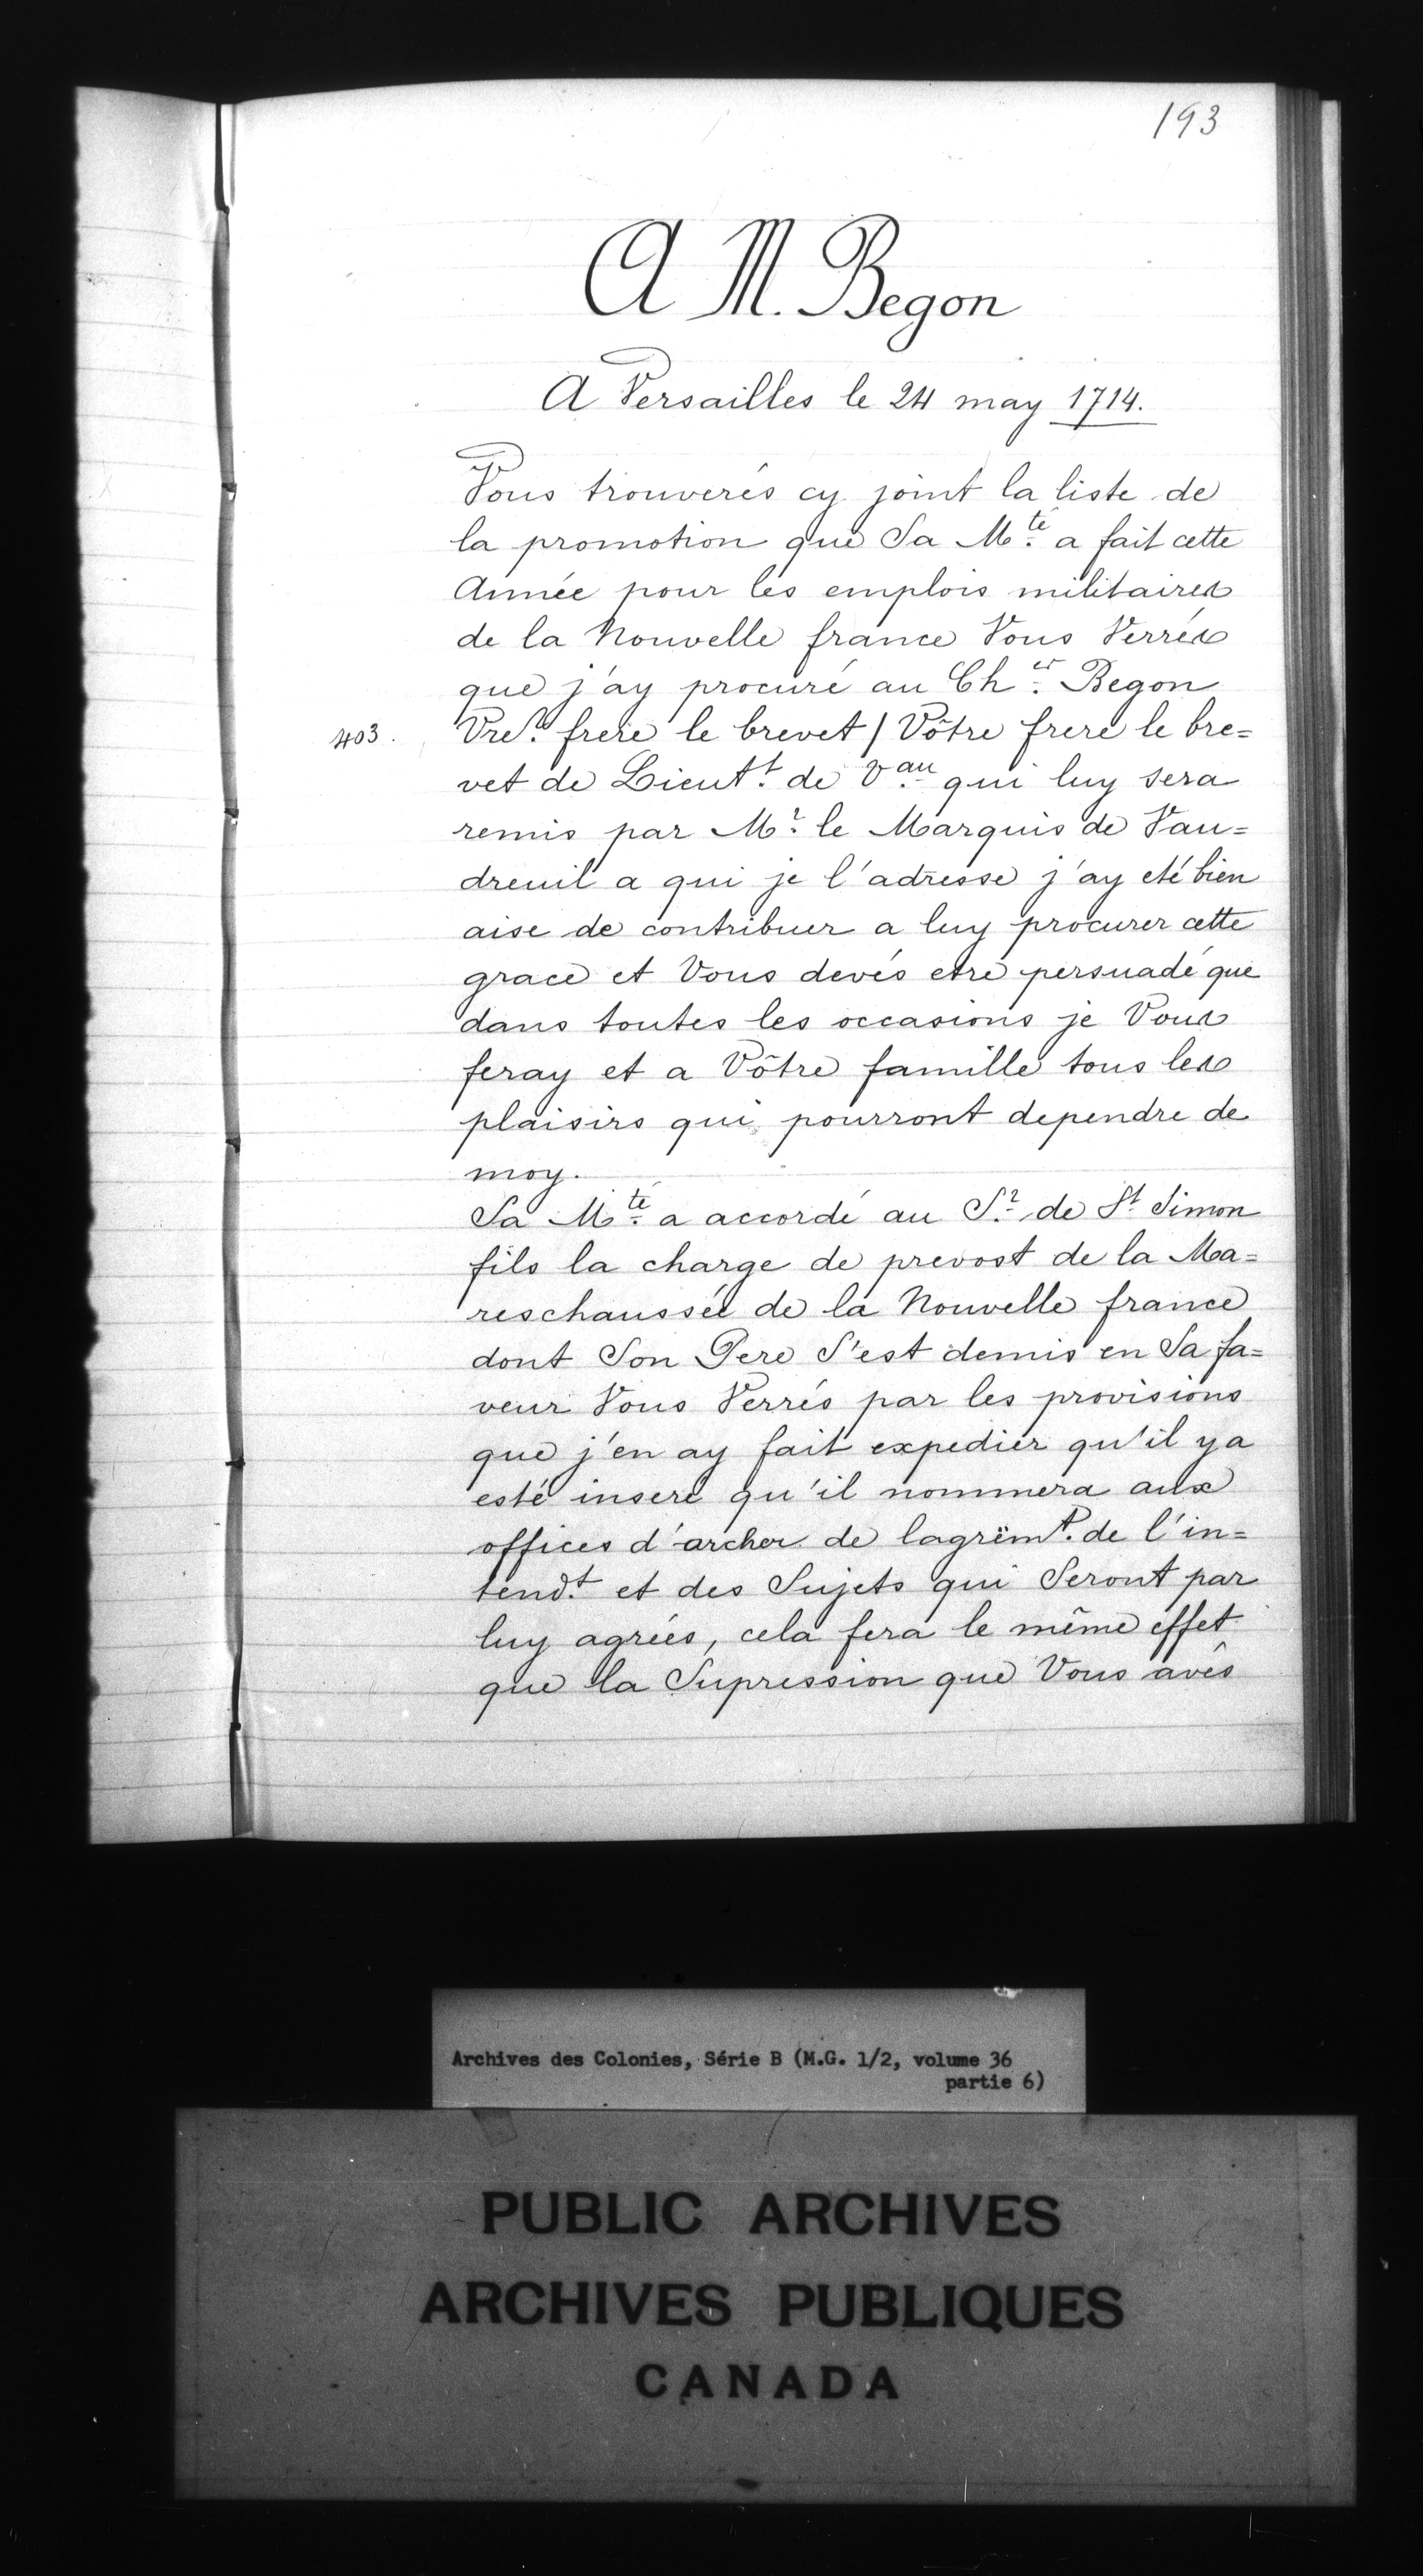 193
A M. Begon
A Versailles le 24 may 1714.
Vous trouverés cy joint la liste de
la promotion que Sa M.té a fait cette
Année pour les emplois militaires
de la Nouvelle france Vous Verrés
que j'ay procuré au Ch.er Begon
403. Vre. frere le brevet / Vôtre frere le bre=
vet de Lieut.t de V.au qui luy sera
remis par M.r le Marquis de Vau=
dreuil a qui je l'adresse j'ay eté bien
aise de contribuer a luy procurer cette
grace et Vous devés etre persuadé que
dans toutes les occasions je Vous
feray et a Vôtre famille tous les
plaisirs qui pourront dependre de
moy.
Sa M.té a accordé au S.r de S.t Simon
fils la charge de prevost de la Ma=
reschaussée de la Nouvelle france
dont Son Pere S'est demis en Sa fa=
veur Vous Verrés par les provisions
que j'en ay fait expedier qu'il y a
esté inseré qu'il nommera aux
offices d'archer de lagrëm.t de l'in=
tend.t et des Sujets qui Seront par
luy agréés, cela fera le même effet
que la Supression que Vous avés
Archives des Colonies, Série B (M.G. 1/2, volume 36
partie 6)
PUBLIC ARCHIVES
ARCHIVES PUBLIQUES
CANADA